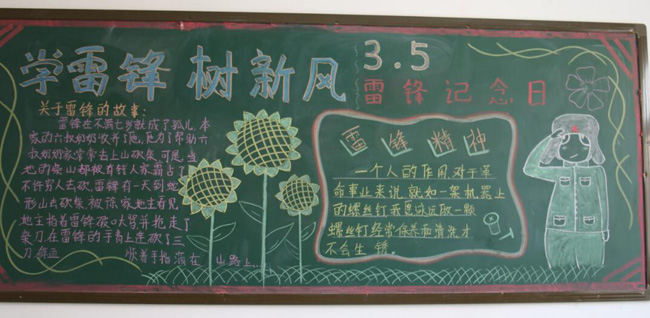 学雷锋 树新风
3.5
雷锋记念日
关于雷锋的故事:
雷锋在不满七岁就成了孤儿,本
家的六叔奶奶收养了他。他为了帮助六
叔奶奶家,常常去上山砍柴,可是,当
地的柴山都被有钱人家霸占了,
不许穷人去砍。雷锋有一天到蛇
形山去砍柴,被徐家地主看见,
地主指着雷锋破口大骂并抢走了
柴刀在雷锋的手背上连砍了三
刀 顺着手指滴在 山路上
雷锋精神
一个人的作用,对于革
命事业来说,就如一架机器上
的螺丝钉。我愿永远做一颗
螺丝钉经常保养而清洗才
不会生锈。